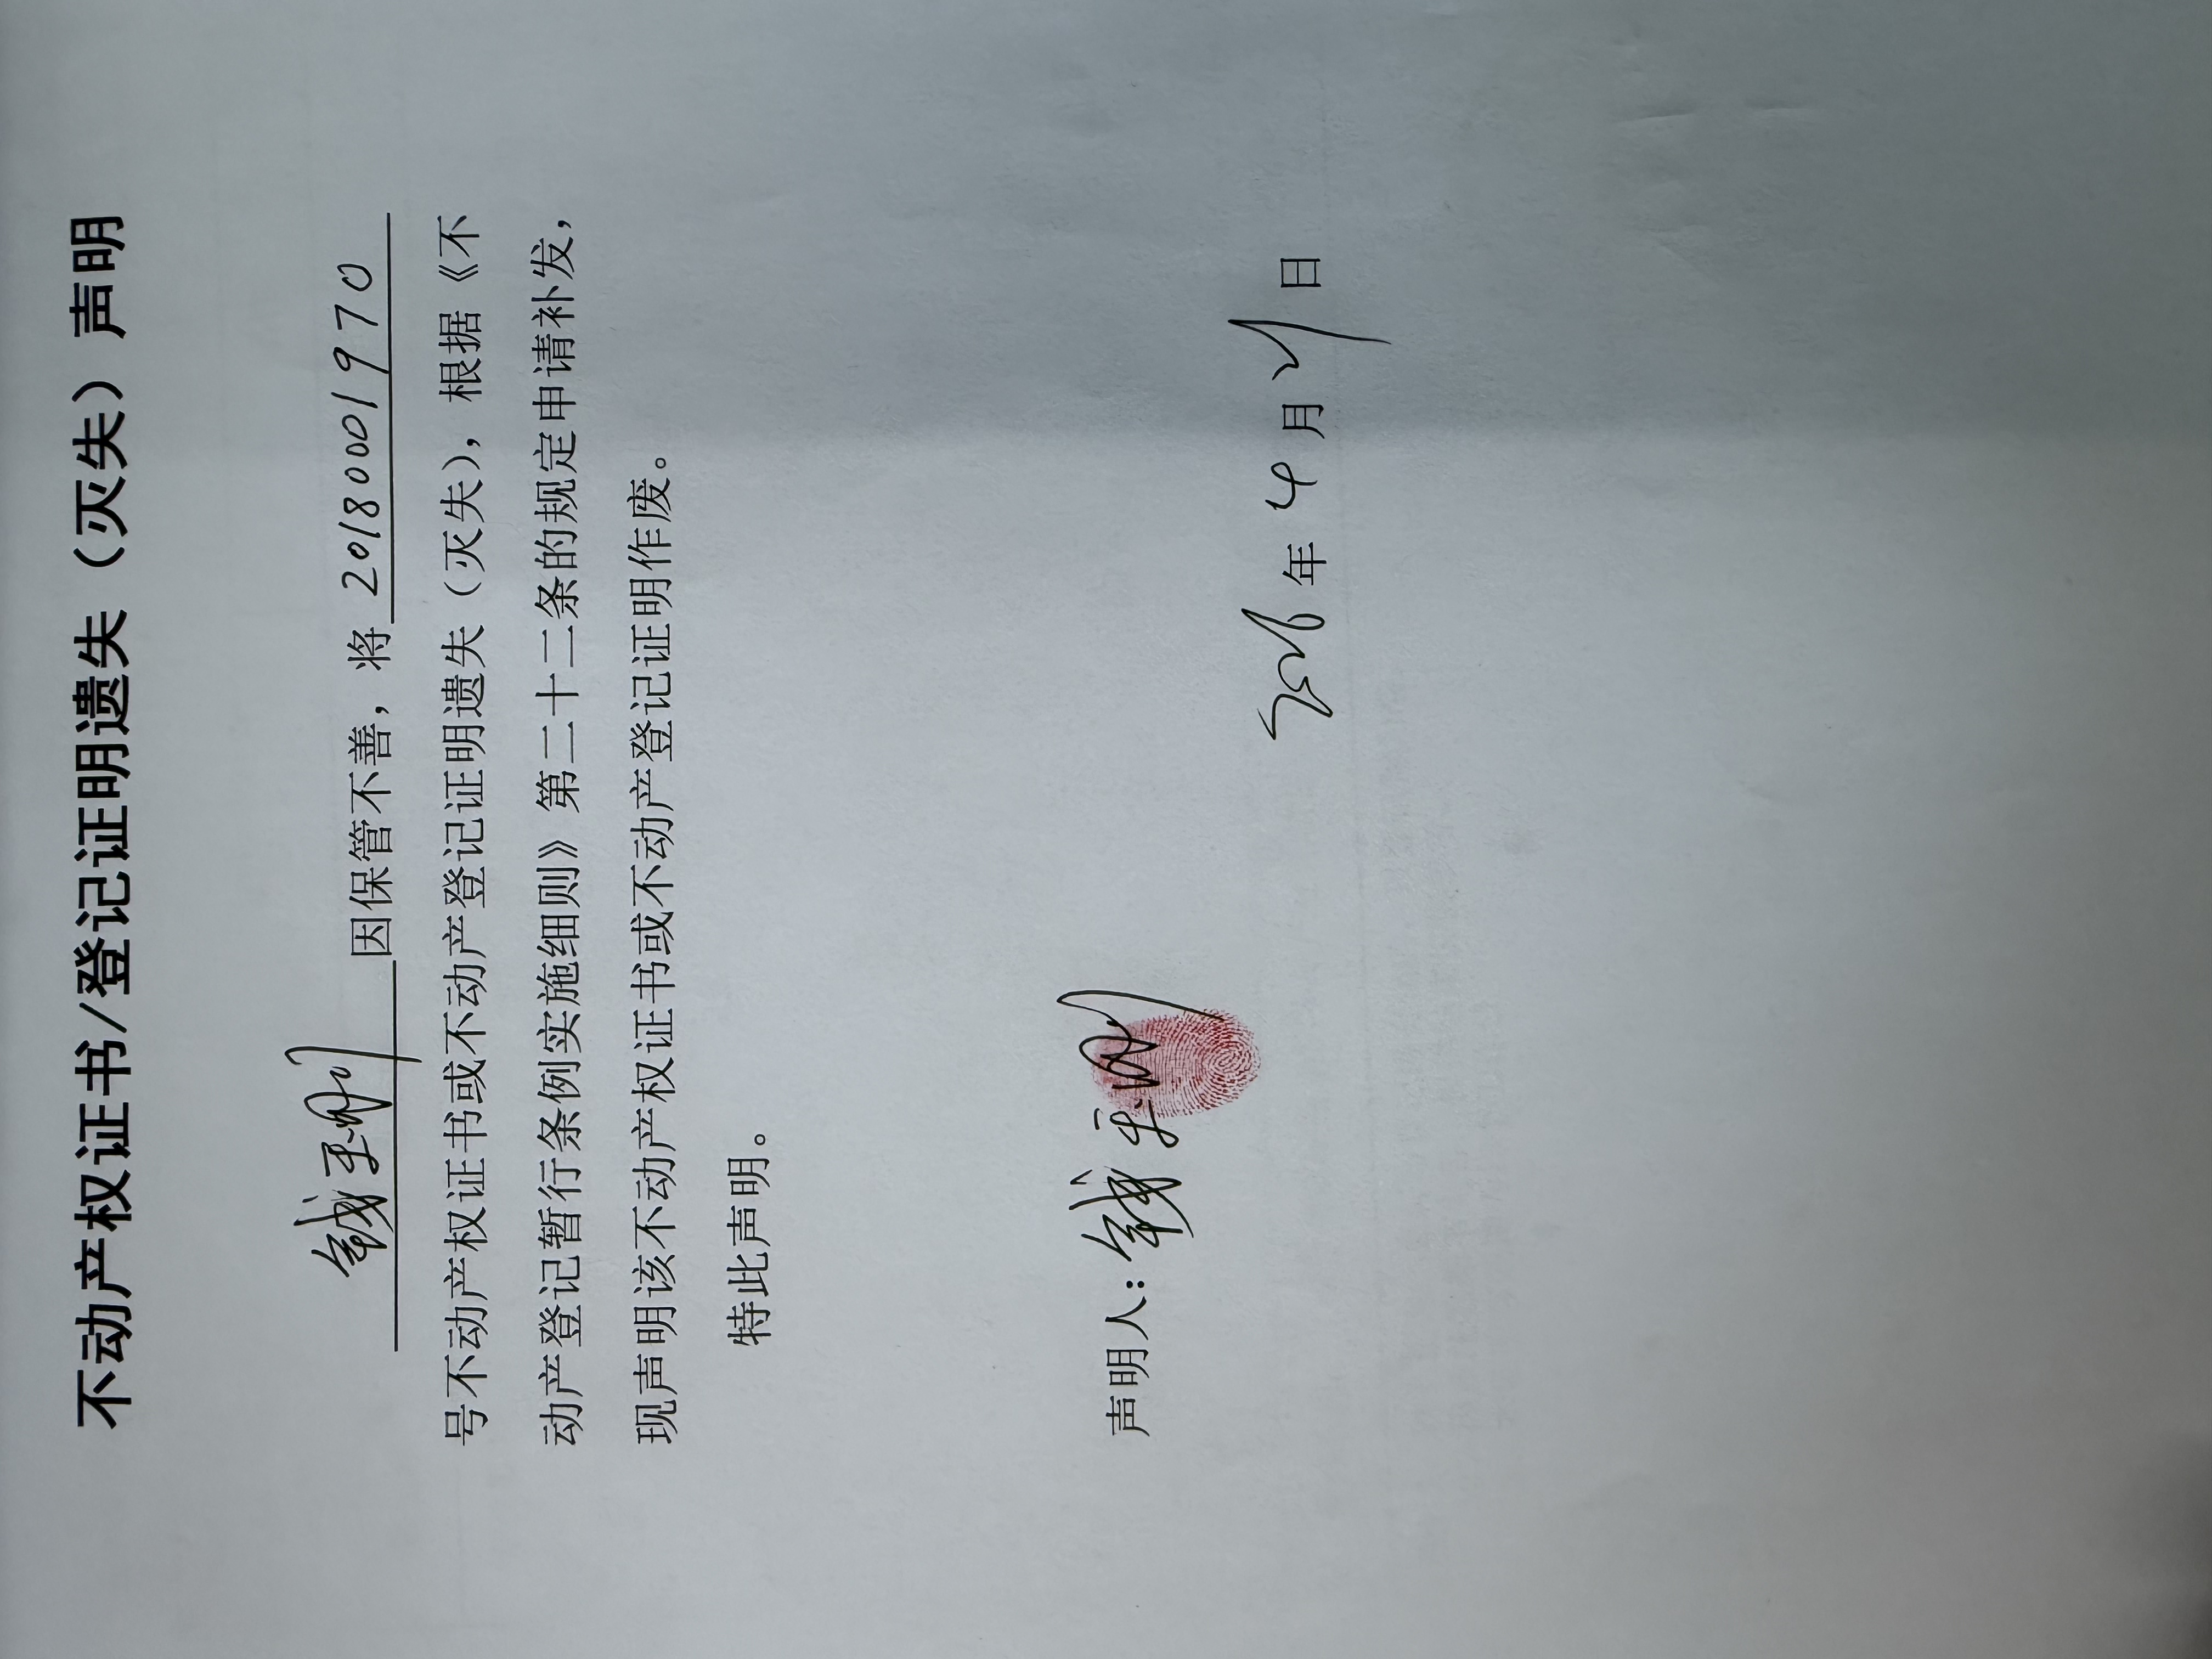 不动产权证书/登记证明遗失（灭失）声明
钱玉珊 因保管不善，将 20180001970
号不动产权证书或不动产登记证明遗失（灭失），根据《不
动产登记暂行条例实施细则》第二十二条的规定申请补发，
现声明该不动产权证书或不动产登记证明作废。
特此声明。
声明人：钱玉珊
年4月21日